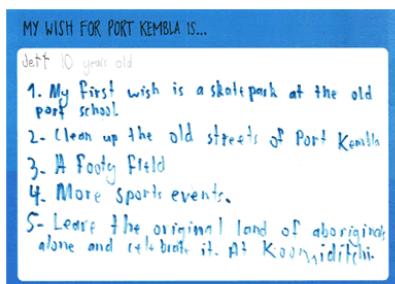 MY WISH FOR PORT KEMBLA IS...
Jett 10 years old
1. My first wish is a skatepark at the old
port school
2- Clean up the old streets of Port Kembla
3- A footy field
4- More sports events.
5- Leave the original land of aboriginals
alone and celebrate it. At Koomiditchi.